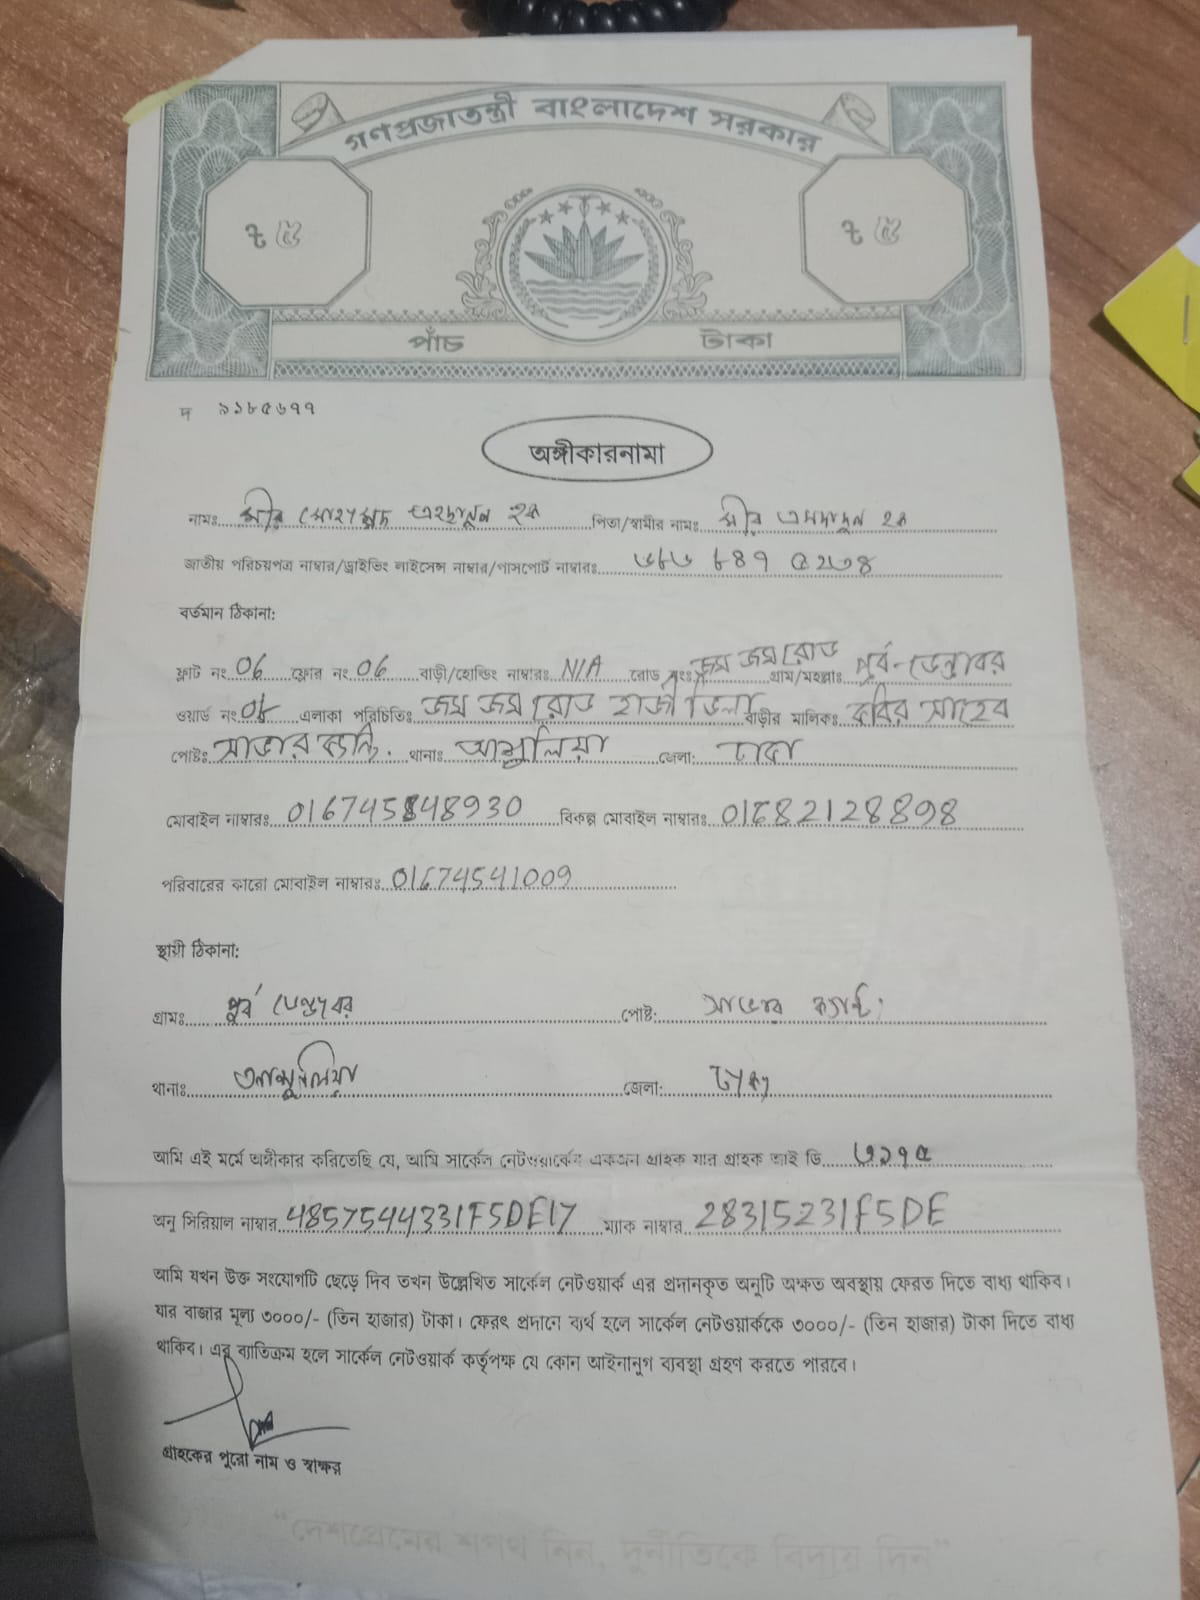 গণপ্রজাতন্ত্রী বাংলাদেশ সরকার
৳ ৫ ৳ ৫
পাঁচ টাকা
দ ৯১৮৫৬৭৭
অঙ্গীকারনামা
নামঃ মীর মোহাম্মদ এহছানুল হক পিতা/স্বামীর নামঃ মীর এমদাদুল হক
জাতীয় পরিচয়পত্র নাম্বার/ড্রাইভিং লাইসেন্স নাম্বার/পাসপোর্ট নাম্বারঃ ৩৮৩ ৮৪৭ ৫২৩৪
বর্তমান ঠিকানা:
ফ্লাট নং 06 ফ্লোর নং 06 বাড়ী/হোল্ডিং নাম্বারঃ N/A রোড নংঃ জম জম রোড গ্রাম/মহল্লাঃ পূর্ব-ডেন্ডাবর
ওয়ার্ড নং 08 এলাকা পরিচিতিঃ জম জম রোড হাজী ভিলা বাড়ীর মালিকঃ কবির সাহেব
পোষ্টঃ সাভার ক্যান্ট. থানাঃ আশুলিয়া জেলা: ঢাকা
মোবাইল নাম্বারঃ বিকল্প মোবাইল নাম্বারঃ 01682128898
পরিবারের কারো মোবাইল নাম্বারঃ 01674541009
স্থায়ী ঠিকানা:
গ্রামঃ পূর্ব ডেন্ডাবর পোষ্ট: সাভার ক্যান্ট:
থানাঃ আশুলিয়া জেলা: ঢাকা
আমি এই মর্মে অঙ্গীকার করিতেছি যে, আমি সার্কেল নেটওয়ার্কের একজন গ্রাহক যার গ্রাহক আই ডি ৩২৭৫
অনু সিরিয়াল নাম্বার 4857544331F5DE17 ম্যাক নাম্বার 28315231F5DE
আমি যখন উক্ত সংযোগটি ছেড়ে দিব তখন উল্লেখিত সার্কেল নেটওয়ার্ক এর প্রদানকৃত অনুটি অক্ষত অবস্থায় ফেরত দিতে বাধ্য থাকিব।
যার বাজার মূল্য ৩০০০/- (তিন হাজার) টাকা। ফেরৎ প্রদানে ব্যর্থ হলে সার্কেল নেটওয়ার্ককে ৩০০০/- (তিন হাজার) টাকা দিতে বাধ্য
থাকিব। এর ব্যাতিক্রম হলে সার্কেল নেটওয়ার্ক কর্তৃপক্ষ যে কোন আইনানুগ ব্যবস্থা গ্রহণ করতে পারবে।
গ্রাহকের পুরো নাম ও স্বাক্ষর
"দেশপ্রেমের শপথ নিন, দুর্নীতিকে বিদায় দিন"